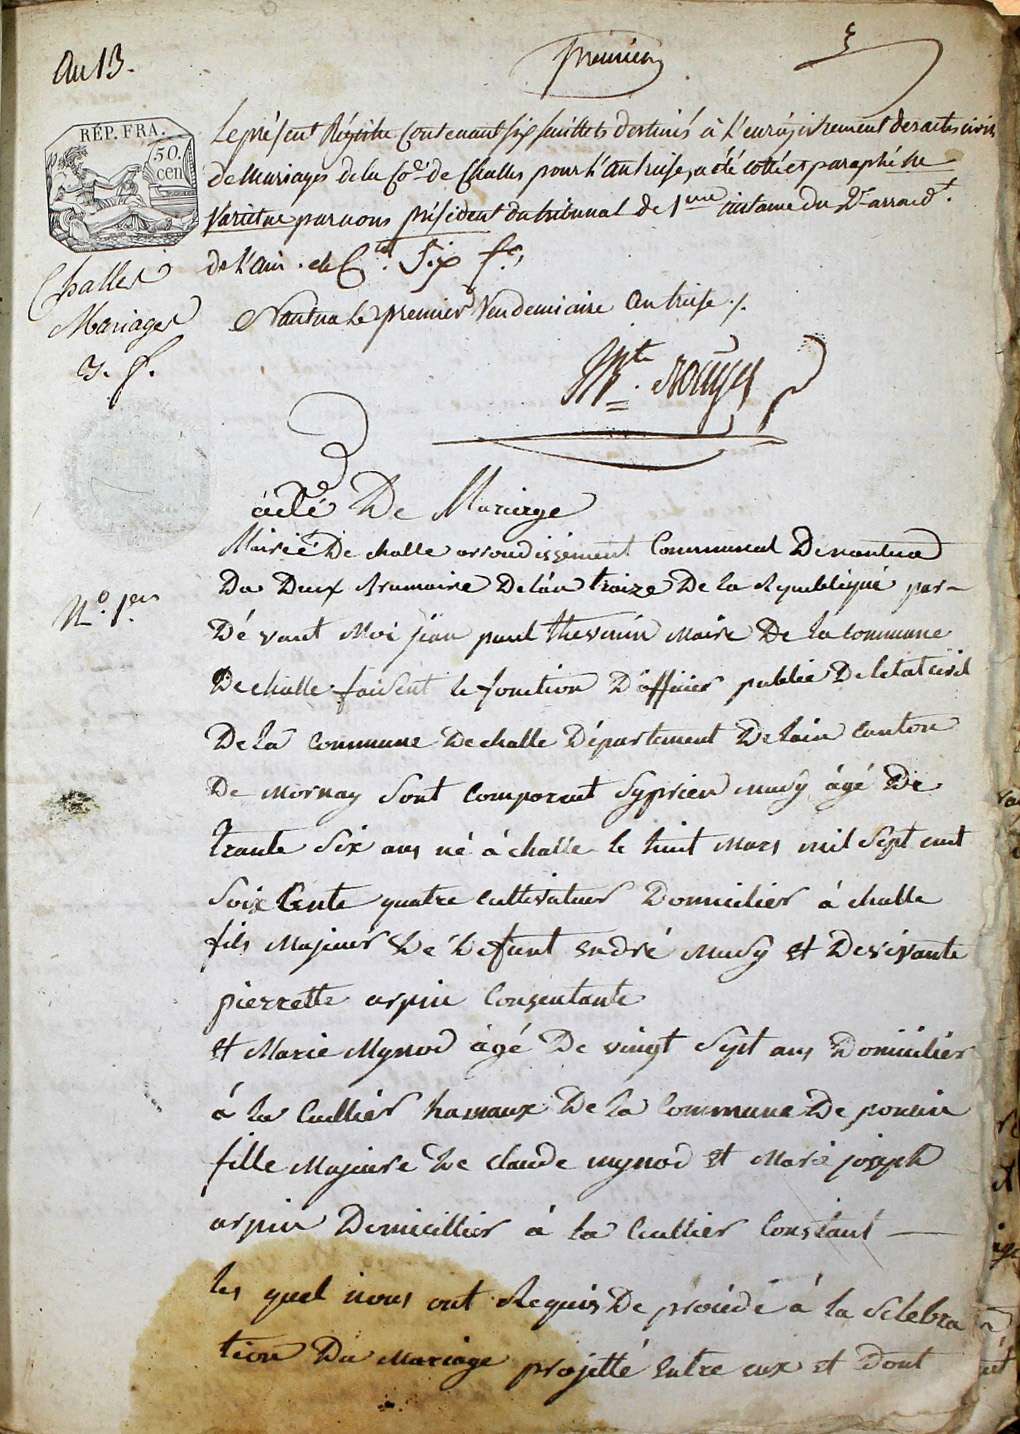 An 13.
premier
RÉP. FRA.
50.
cen
Le présent Régistre contenant six feuillets destinés à l'enrégistrement des actes civils
de Mariages de la Cne de Challes pour l'an treise, a été cotté et paraphé ne
varietur par nous président du tribunal de 1ere instance du arrond.t
de l'ain. six f.
Challes
Mariages
3. f.
Nantua le premier Vendemiaire an treise ./.
acte De Mariage
Mairie De challe arrondissement Communal De nantua
N.o 1.er
Du Deux Brumaire De l'an traize De la Republiqué par-
Dé vant Moi jean paul thevenin Maire De la commune
De challe faisent le fonction D'officier public De letat civil
De la commune De challe Département De lain canton
De Mornay sont comparent Syprien Mudy âgé De
trante six ans né à challe le huit Mars mil sept cent
soix sente quatre cultivateur Domicilier à challe
fils Majeur De Defunt andré Mudy et De vivante
pierrette arpin Consentante
et Marie Mynod âgé De vingt sept ans Domicilier
à la Cullier hamaux De la Commune De poncin
fille Majeure De claude mynod et Marie joseph
arpin Domicillier à la Cullier Constant
les quel nous ont Requis De procédé à la Selebra
tion Du Mariage projetté entre eux et Dont